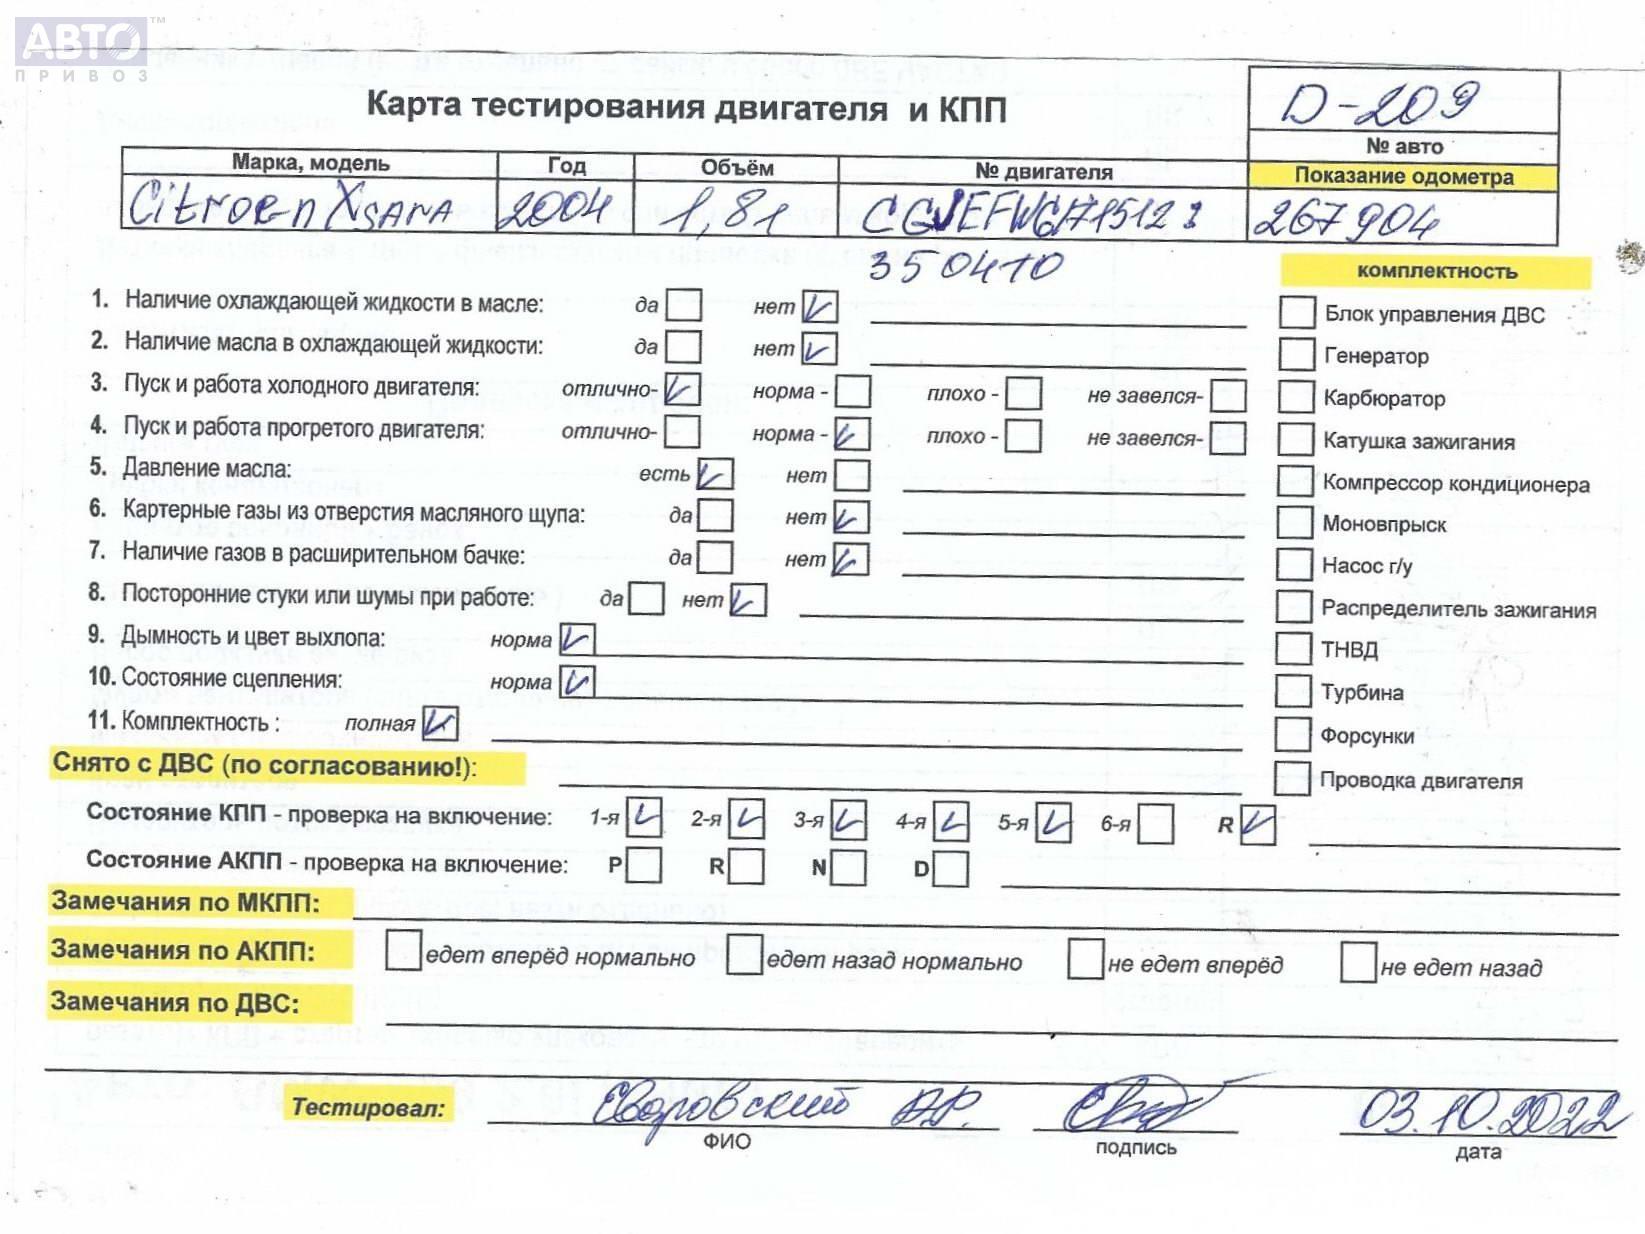 АВТО™
ПРИВОЗ
Карта тестирования двигателя и КПП
D-209
№ авто
Марка, модель Год Объём № двигателя Показание одометра
Citroen Xsara 2004 1,8i 267904
350470
комплектность
1. Наличие охлаждающей жидкости в масле: да нет
2. Наличие масла в охлаждающей жидкости: да нет
3. Пуск и работа холодного двигателя: отлично- норма - плохо - не завелся-
4. Пуск и работа прогретого двигателя: отлично- норма - плохо - не завелся-
5. Давление масла: есть нет
6. Картерные газы из отверстия масляного щупа: да нет
7. Наличие газов в расширительном бачке: да нет
8. Посторонние стуки или шумы при работе: да нет
9. Дымность и цвет выхлопа: норма
10. Состояние сцепления: норма
11. Комплектность : полная
Блок управления ДВС
Генератор
Карбюратор
Катушка зажигания
Компрессор кондиционера
Моновпрыск
Насос г/у
Распределитель зажигания
ТНВД
Турбина
Форсунки
Проводка двигателя
Снято с ДВС (по согласованию!):
Состояние КПП - проверка на включение: 1-я 2-я 3-я 4-я 5-я 6-я R
Состояние АКПП - проверка на включение: P R N D
Замечания по МКПП:
Замечания по АКПП: едет вперёд нормально едет назад нормально не едет вперёд не едет назад
Замечания по ДВС:
Тестировал: 03.10.2022
ФИО подпись дата